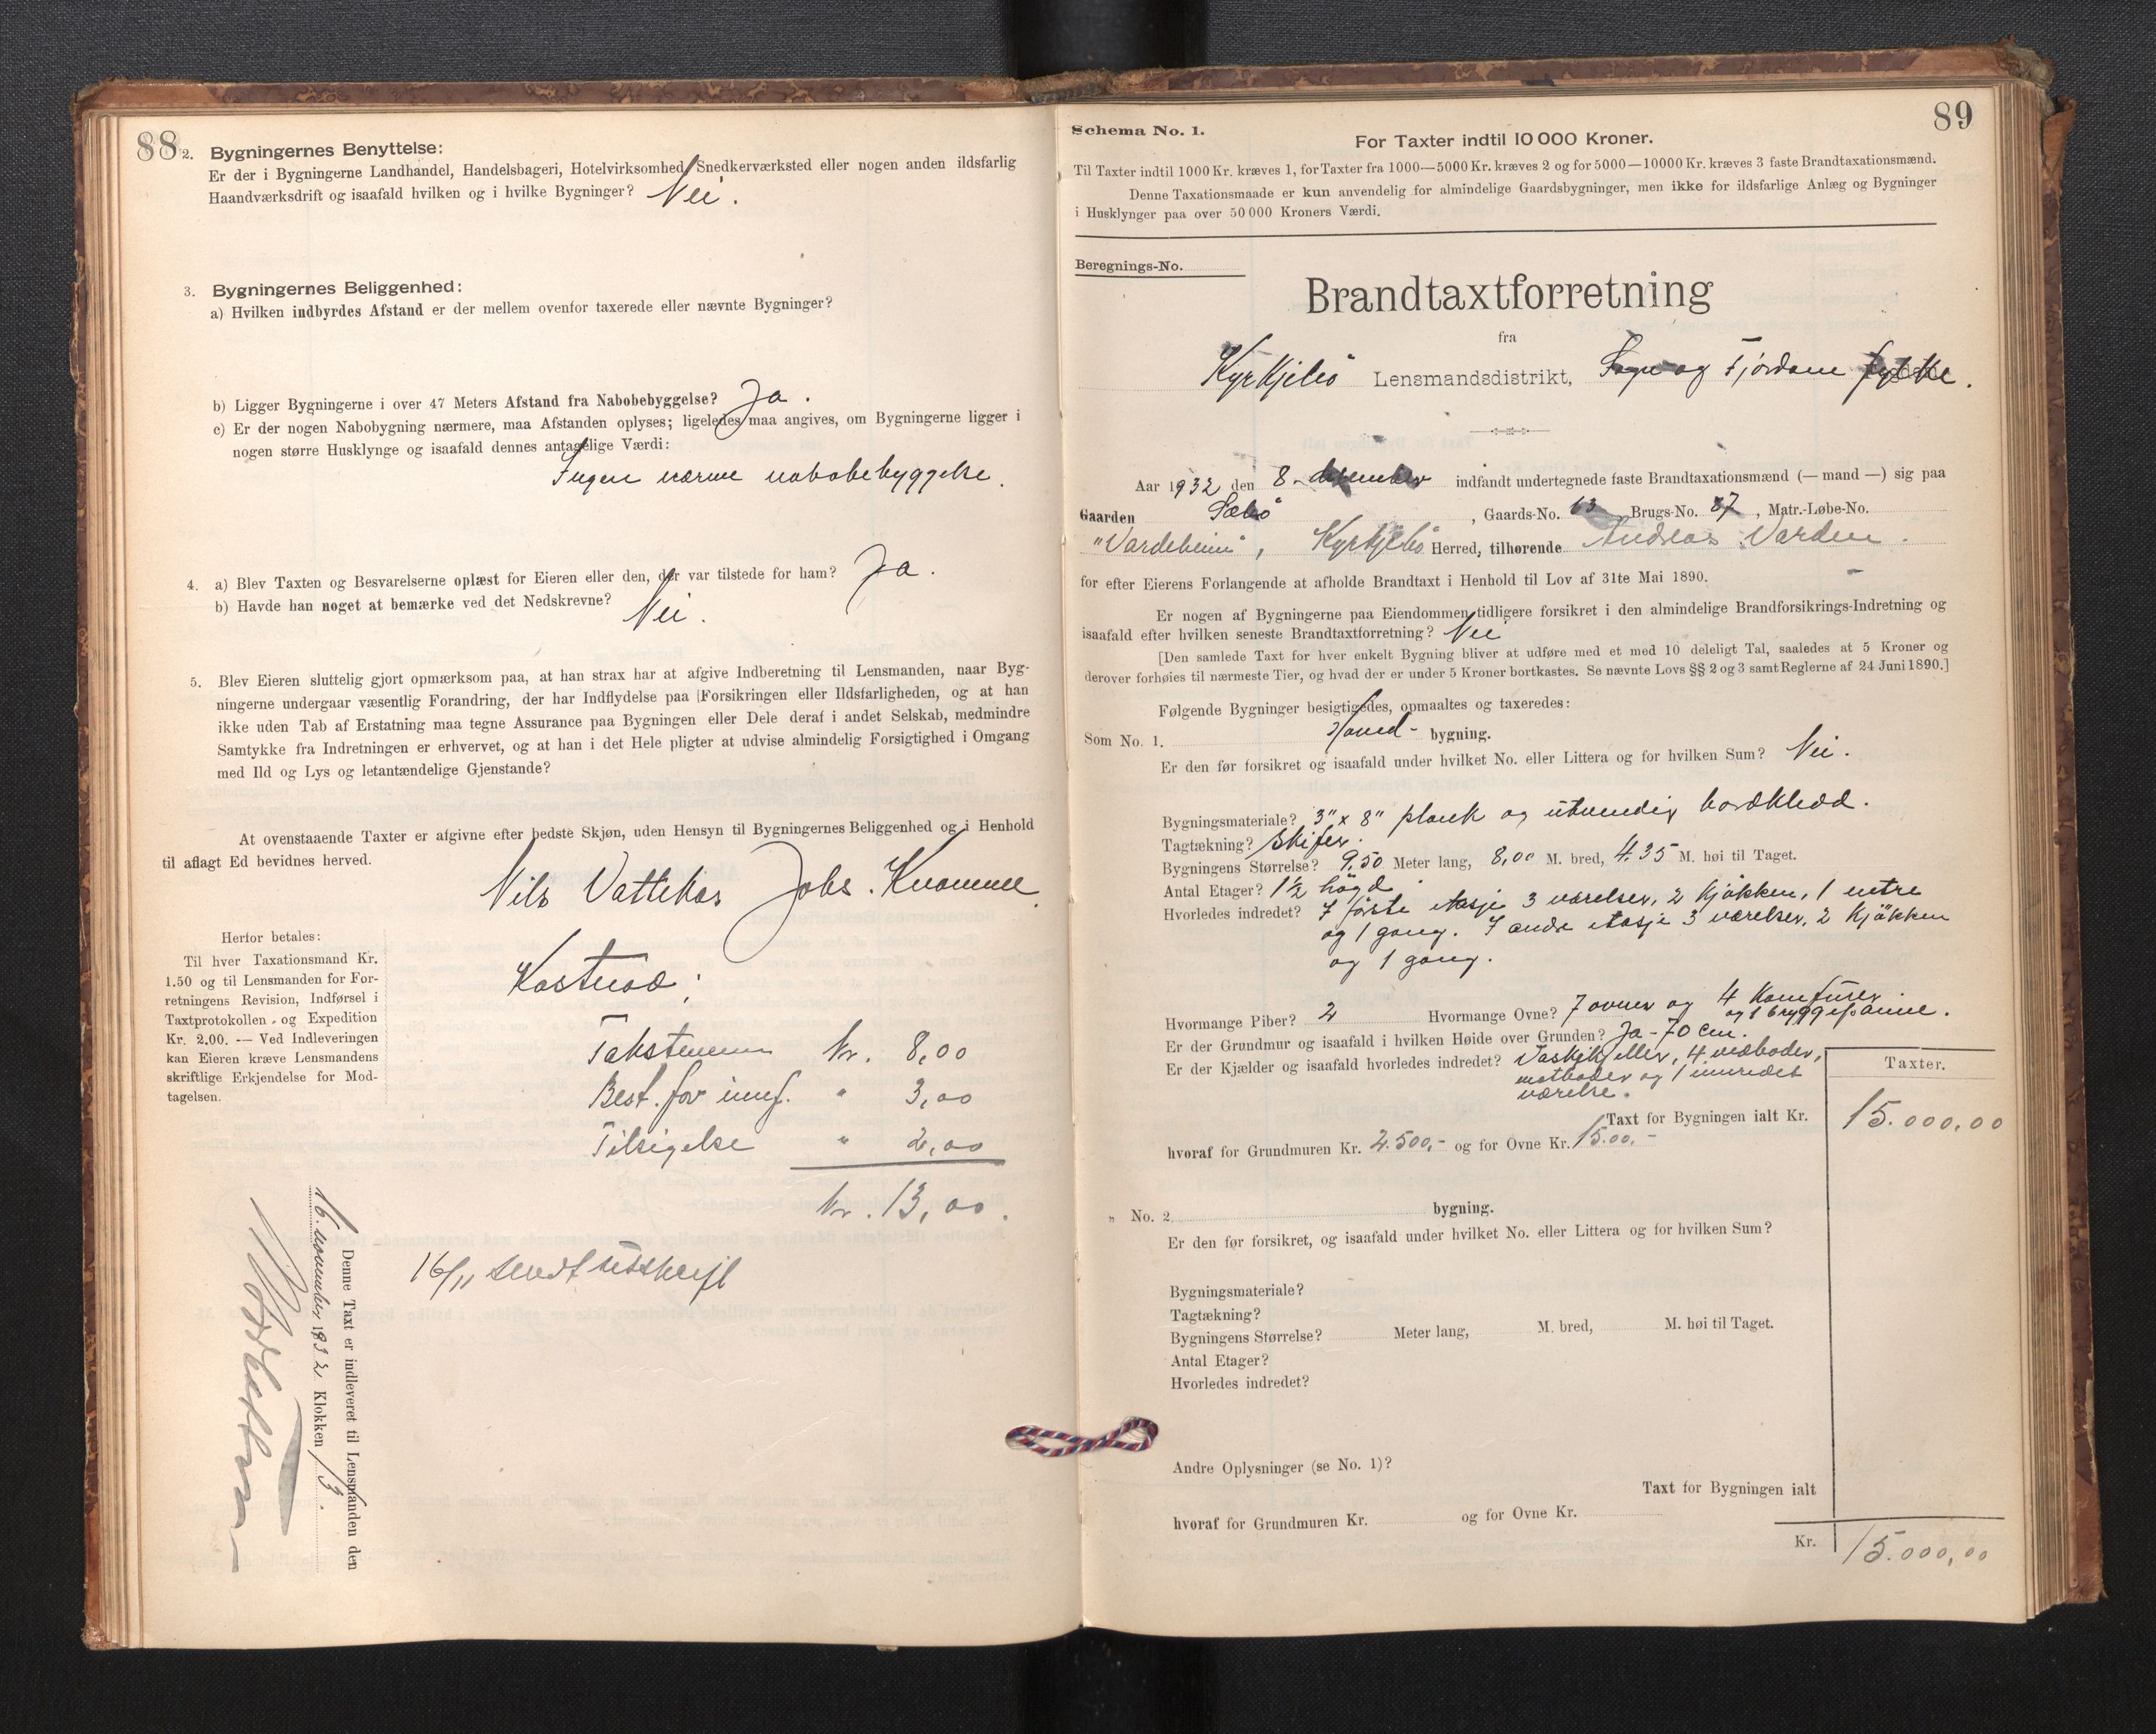 88
2. Bygningernes Benyttelse:
Er der i Bygningerne Landhandel, Handelsbageri, Hotelvirksomhed, Snedkerværksted eller nogen anden ildsfarlig
Haandværksdrift og isaafald hvilken og i hvilke Bygninger? Nei.
3. Bygningernes Beliggenhed:
a) Hvilken indbyrdes Afstand er der mellem ovenfor taxerede eller nævnte Bygninger?
b) Ligger Bygningerne i over 47 Meters Afstand fra Nabobebyggelse? Ja.
c) Er der nogen Nabobygning nærmere, maa Afstanden oplyses; ligeledes maa angives, om Bygningerne ligger i
nogen større Husklynge og isaafald dennes antagelige Værdi:
Ingen nærme nabobebyggelse.
4. a) Blev Taxten og Besvarelserne oplæst for Eieren eller den, der var tilstede for ham? Ja.
b) Havde han noget at bemærke ved det Nedskrevne? Nei.
5. Blev Eieren sluttelig gjort opmærksom paa, at han strax har at afgive Indberetning til Lensmanden, naar Byg-
ningerne undergaar væsentlig Forandring, der har Indflydelse paa Forsikringen eller Ildsfarligheden, og at han
ikke uden Tab af Erstatning maa tegne Assurance paa Bygningen eller Dele deraf i andet Selskab, medmindre
Samtykke fra Indretningen er erhvervet, og at han i det Hele pligter at udvise almindelig Forsigtighed i Omgang
med Ild og Lys og letantændelige Gjenstande?
At ovenstaaende Taxter er afgivne efter bedste Skjøn, uden Hensyn til Bygningernes Beliggenhed og i Henhold
til aflagt Ed bevidnes herved.
Nils Vattekar Johs. Kvamme.
Herfor betales:
Til hver Taxationsmand Kr.
1.50 og til Lensmanden for For-
retningens Revision, Indførsel i
Taxtprotokollen og Expedition
Kr. 2.00. — Ved Indleveringen
kan Eieren kræve Lensmandens
skriftlige Erkjendelse for Mod-
tagelsen.
Kostnad:
Takstmenn Kr. 8,00
Best. for innf. " 3,00
Tilsigelse " 2,00
Kr. 13,00.
16/11 sendt utskrift
Denne Taxt er indleveret til Lensmanden den
16. november 1932 Klokken 13.
89
Schema No. 1.
For Taxter indtil 10 000 Kroner.
Til Taxter indtil 1000 Kr. kræves 1, for Taxter fra 1000—5000 Kr. kræves 2 og for 5000—10000 Kr. kræves 3 faste Brandtaxationsmænd.
Denne Taxationsmaade er kun anvendelig for almindelige Gaardsbygninger, men ikke for ildsfarlige Anlæg og Bygninger
i Husklynger paa over 50 000 Kroners Værdi.
Beregnings-No.
Brandtaxtforretning
fra
Kyrkjebø Lensmandsdistrikt, Sogn og Fjordane fylke.
Aar 1932 den 8. indfandt undertegnede faste Brandtaxationsmænd (— mand —) sig paa
Gaarden Sæbø, Gaards-No. 63, Brugs-No. 37, Matr.-Løbe-No.
"Vardeheim", Kyrkjebø Herred, tilhørende Andreas Varden.
for efter Eierens Forlangende at afholde Brandtaxt i Henhold til Lov af 31te Mai 1890.
Er nogen af Bygningerne paa Eiendommen tidligere forsikret i den almindelige Brandforsikrings-Indretning og
isaafald efter hvilken seneste Brandtaxtforretning? Nei
[Den samlede Taxt for hver enkelt Bygning bliver at udføre med et med 10 deleligt Tal, saaledes at 5 Kroner og
derover forhøies til nærmeste Tier, og hvad der er under 5 Kroner bortkastes. Se nævnte Lovs §§ 2 og 3 samt Reglerne af 24 Juni 1890.]
Følgende Bygninger besigtigedes, opmaaltes og taxeredes:
Som No. 1. Hoved- bygning.
Er den før forsikret og isaafald under hvilket No. eller Littera og for hvilken Sum? Nei.
Bygningsmateriale? 3" x 8" plank og utvendig bordkledd.
Tagtækning? Skifer.
Bygningens Størrelse? 9,50 Meter lang, 8,00 M. bred, 4.35 M. høi til Taget.
Antal Etager? 1½ høgd.
Hvorledes indredet? I første etasje 3 værelser, 2 kjøkken, 1 entre
og 1 gang. I andre etasje 3 værelser, 2 kjøkken
og 1 gang.
Hvormange Piber? 2 Hvormange Ovne? 7 ovner og 4 komfurer
og 1 bryggepanne.
Er der Grundmur og isaafald i hvilken Høide over Grunden? Ja - 70 cm.
Er der Kjælder og isaafald hvorledes indredet? Vaskekjeller, 4 vedboder,
matboder og 1 innredet
værelse.
Taxter.
Taxt for Bygningen ialt Kr. 15.000,00
hvoraf for Grundmuren Kr. 2.500,- og for Ovne Kr. 15.00.-
" No. 2. bygning.
Er den før forsikret, og isaafald under hvilket No. eller Littera og for hvilken Sum?
Bygningsmateriale?
Tagtækning?
Bygningens Størrelse? Meter lang, M. bred, M. høi til Taget.
Antal Etager?
Hvorledes indredet?
Andre Oplysninger (se No. 1)?
Taxt for Bygningen ialt
hvoraf for Grundmuren Kr. og for Ovne Kr.
Kr. 15.000,00